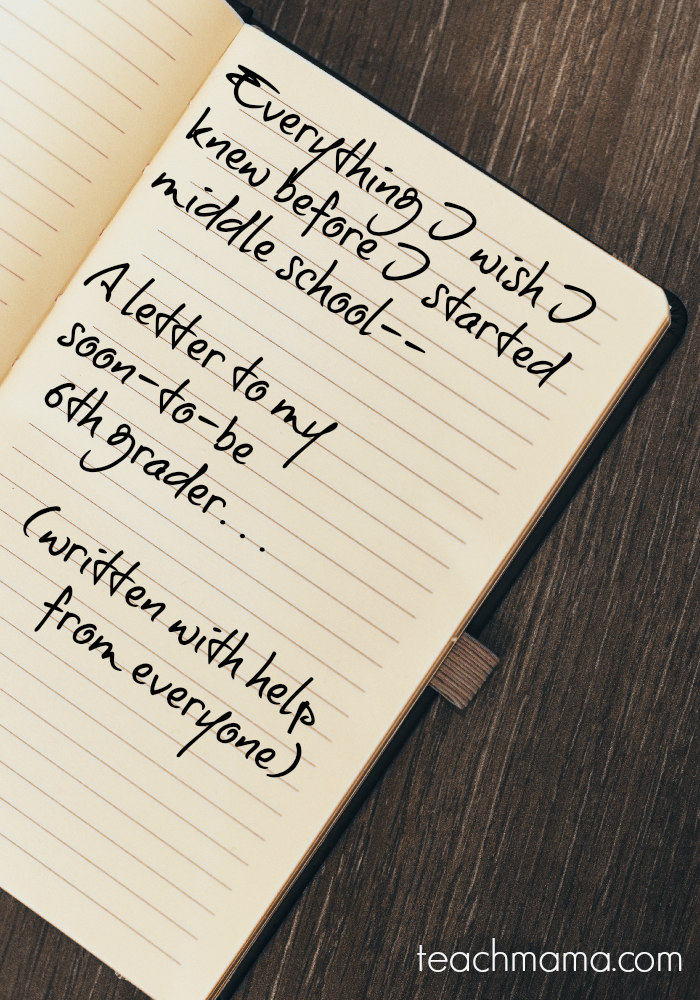 Everything I wish I
knew before I started
middle school--
A letter to my
soon-to-be
6th grader...
(written with help
from everyone)
teachmama.com